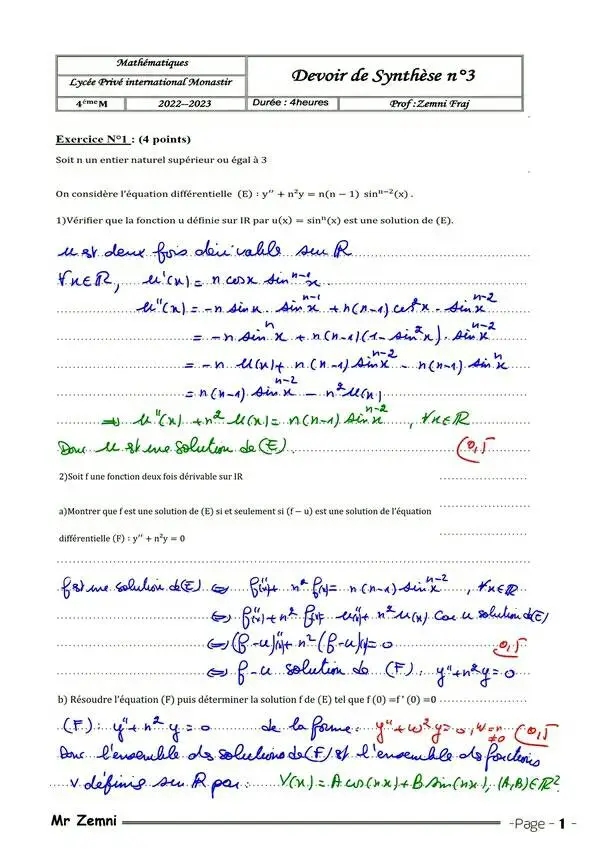 Mathématiques
Lycée Privé international Monastir
Devoir de Synthèse n°3
4èmeM
2022–2023
Durée : 4heures
Prof : Zemni Fraj
Exercice N°1 : (4 points)
Soit n un entier naturel supérieur ou égal à 3
On considère l'équation différentielle (E) : y'' + n²y = n(n − 1) sinⁿ⁻²(x) .
1)Vérifier que la fonction u définie sur IR par u(x) = sinⁿ(x) est une solution de (E).
u est deux fois dérivable sur ℝ
∀x∈ℝ, u'(x) = n cosx sinⁿ⁻¹x
u''(x) = -n sinx sinⁿ⁻¹x + n(n-1) cos²x . sinⁿ⁻²x
= -n sinⁿx + n(n-1)(1-sin²x) . sinⁿ⁻²x
= -n u(x) + n(n-1) sinⁿ⁻²x - n(n-1) sinⁿx
= n(n-1) sinⁿ⁻²x - n² u(x)
⇒ u''(x) + n² u(x) = n(n-1) sinⁿ⁻²x , ∀x∈ℝ
Donc u est une solution de (E). (0,5
2)Soit f une fonction deux fois dérivable sur IR
a)Montrer que f est une solution de (E) si et seulement si (f − u) est une solution de l'équation
différentielle (F) : y'' + n²y = 0
f est une solution de (E) ⇔ f''(x) + n² f(x) = n(n-1) sinⁿ⁻²x , ∀x∈ℝ
⇔ f''(x) + n² f(x) = u''(x) + n² u(x) Car u solution de (E)
⇔ (f-u)''(x) + n² (f-u)(x) = 0 0,5
⇔ f-u solution de (F) : y'' + n²y = 0
b) Résoudre l'équation (F) puis déterminer la solution f de (E) tel que f (0) =f ' (0) =0
(F) : y'' + n² y = 0 de la forme : y'' + ω² y = 0, ω = n ≠ 0 (0,5
Donc l'ensemble des solutions de (F) est l'ensemble des fonctions
v définies sur ℝ par : V(x) = A cos(nx) + B sin(nx), (A,B)∈ℝ²
Mr Zemni
-Page - 1 -